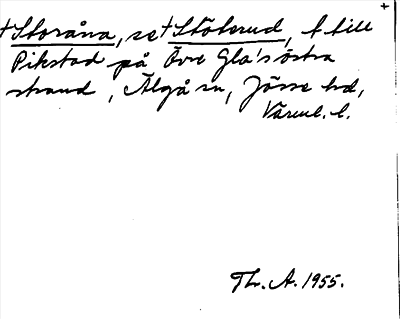 +
†Storåna, se †Stölerud, t till
Pikstad på Övre Gla's östra
strand, Älgå sn, Jösse hd,
Värml. l.
Th. A. 1955.